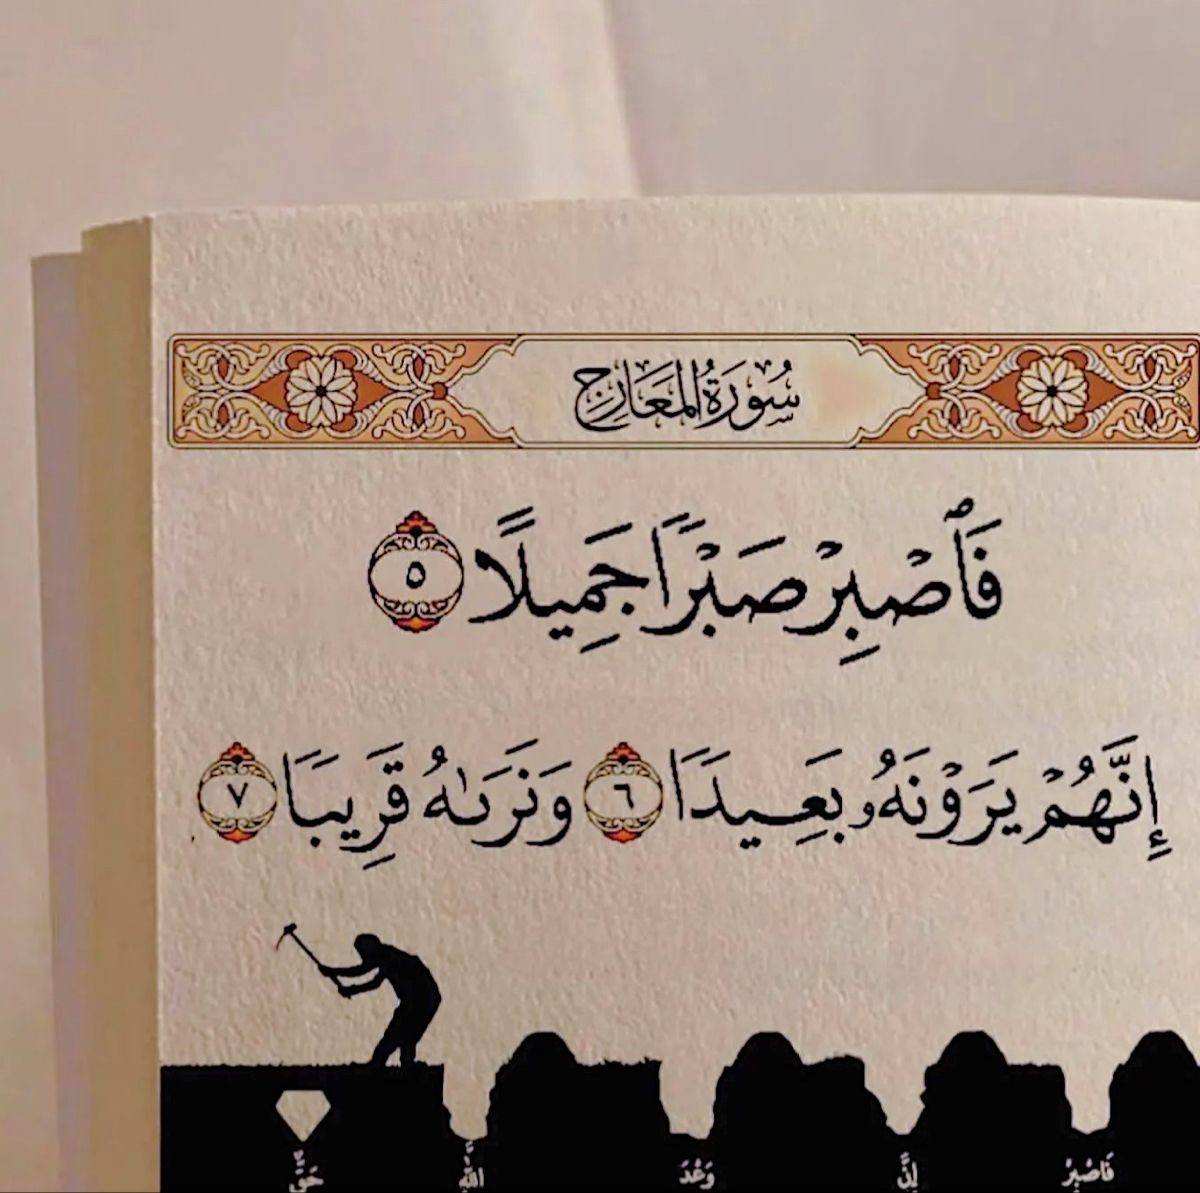 سُورَةُ المَعَارِجِ
فَٱصۡبِرۡ صَبۡرٗا جَمِيلًا ٥
إِنَّهُمۡ يَرَوۡنَهُۥ بَعِيدٗا ٦ وَنَرَىٰهُ قَرِيبٗا ٧
فَاصْبِرْ إِنَّ وَعْدَ اللَّهِ حَقٌّ